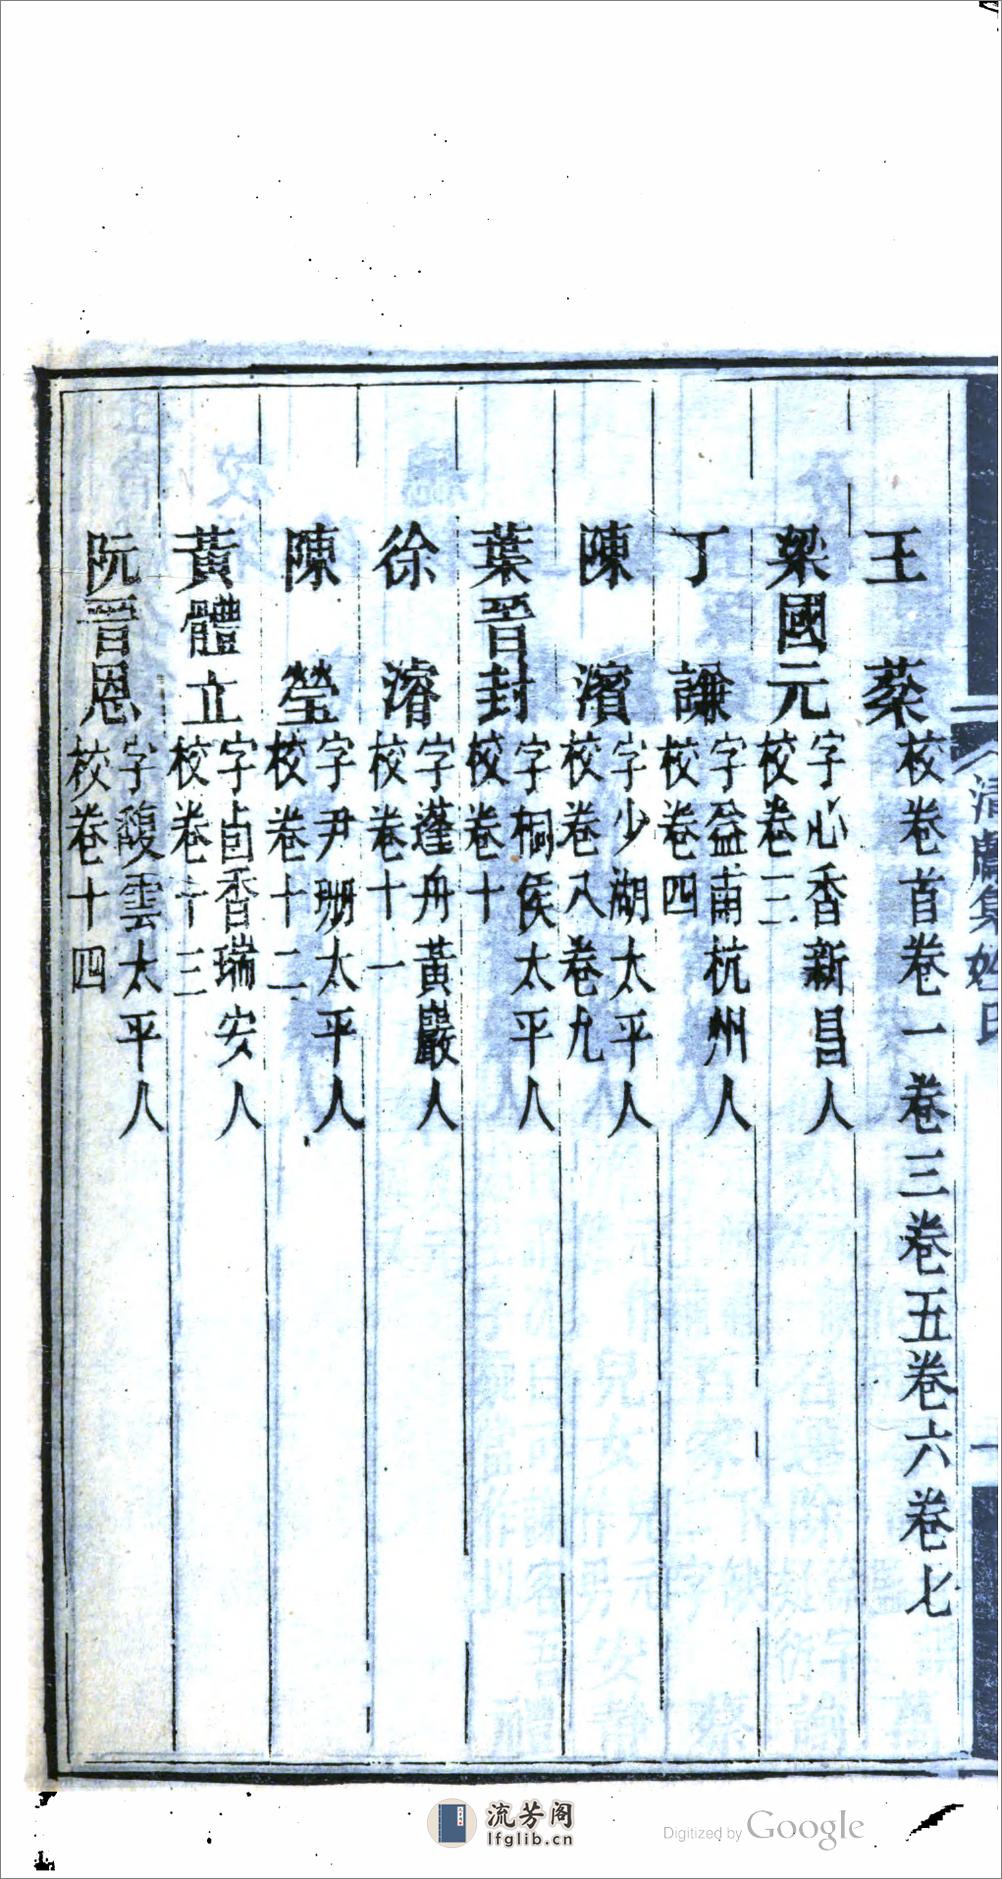 王 棻 校卷首卷一卷三卷五卷六卷七
梁國元 字心香新昌人 校卷二
丁 謙 字益甫杭州人 校卷四
陳 濱 字少湖太平人 校卷八卷九
葉晉封 字桐侯太平人 校卷十
徐 濬 字蓬舟黃巖人 校卷十一
陳 瑩 字尹珊太平人 校卷十二
黃體立 字卣香瑞安人 校卷十三
阮晉恩 字馥雲太平人 校卷十四
流芳阁
lfglib.cn
Digitized by Google